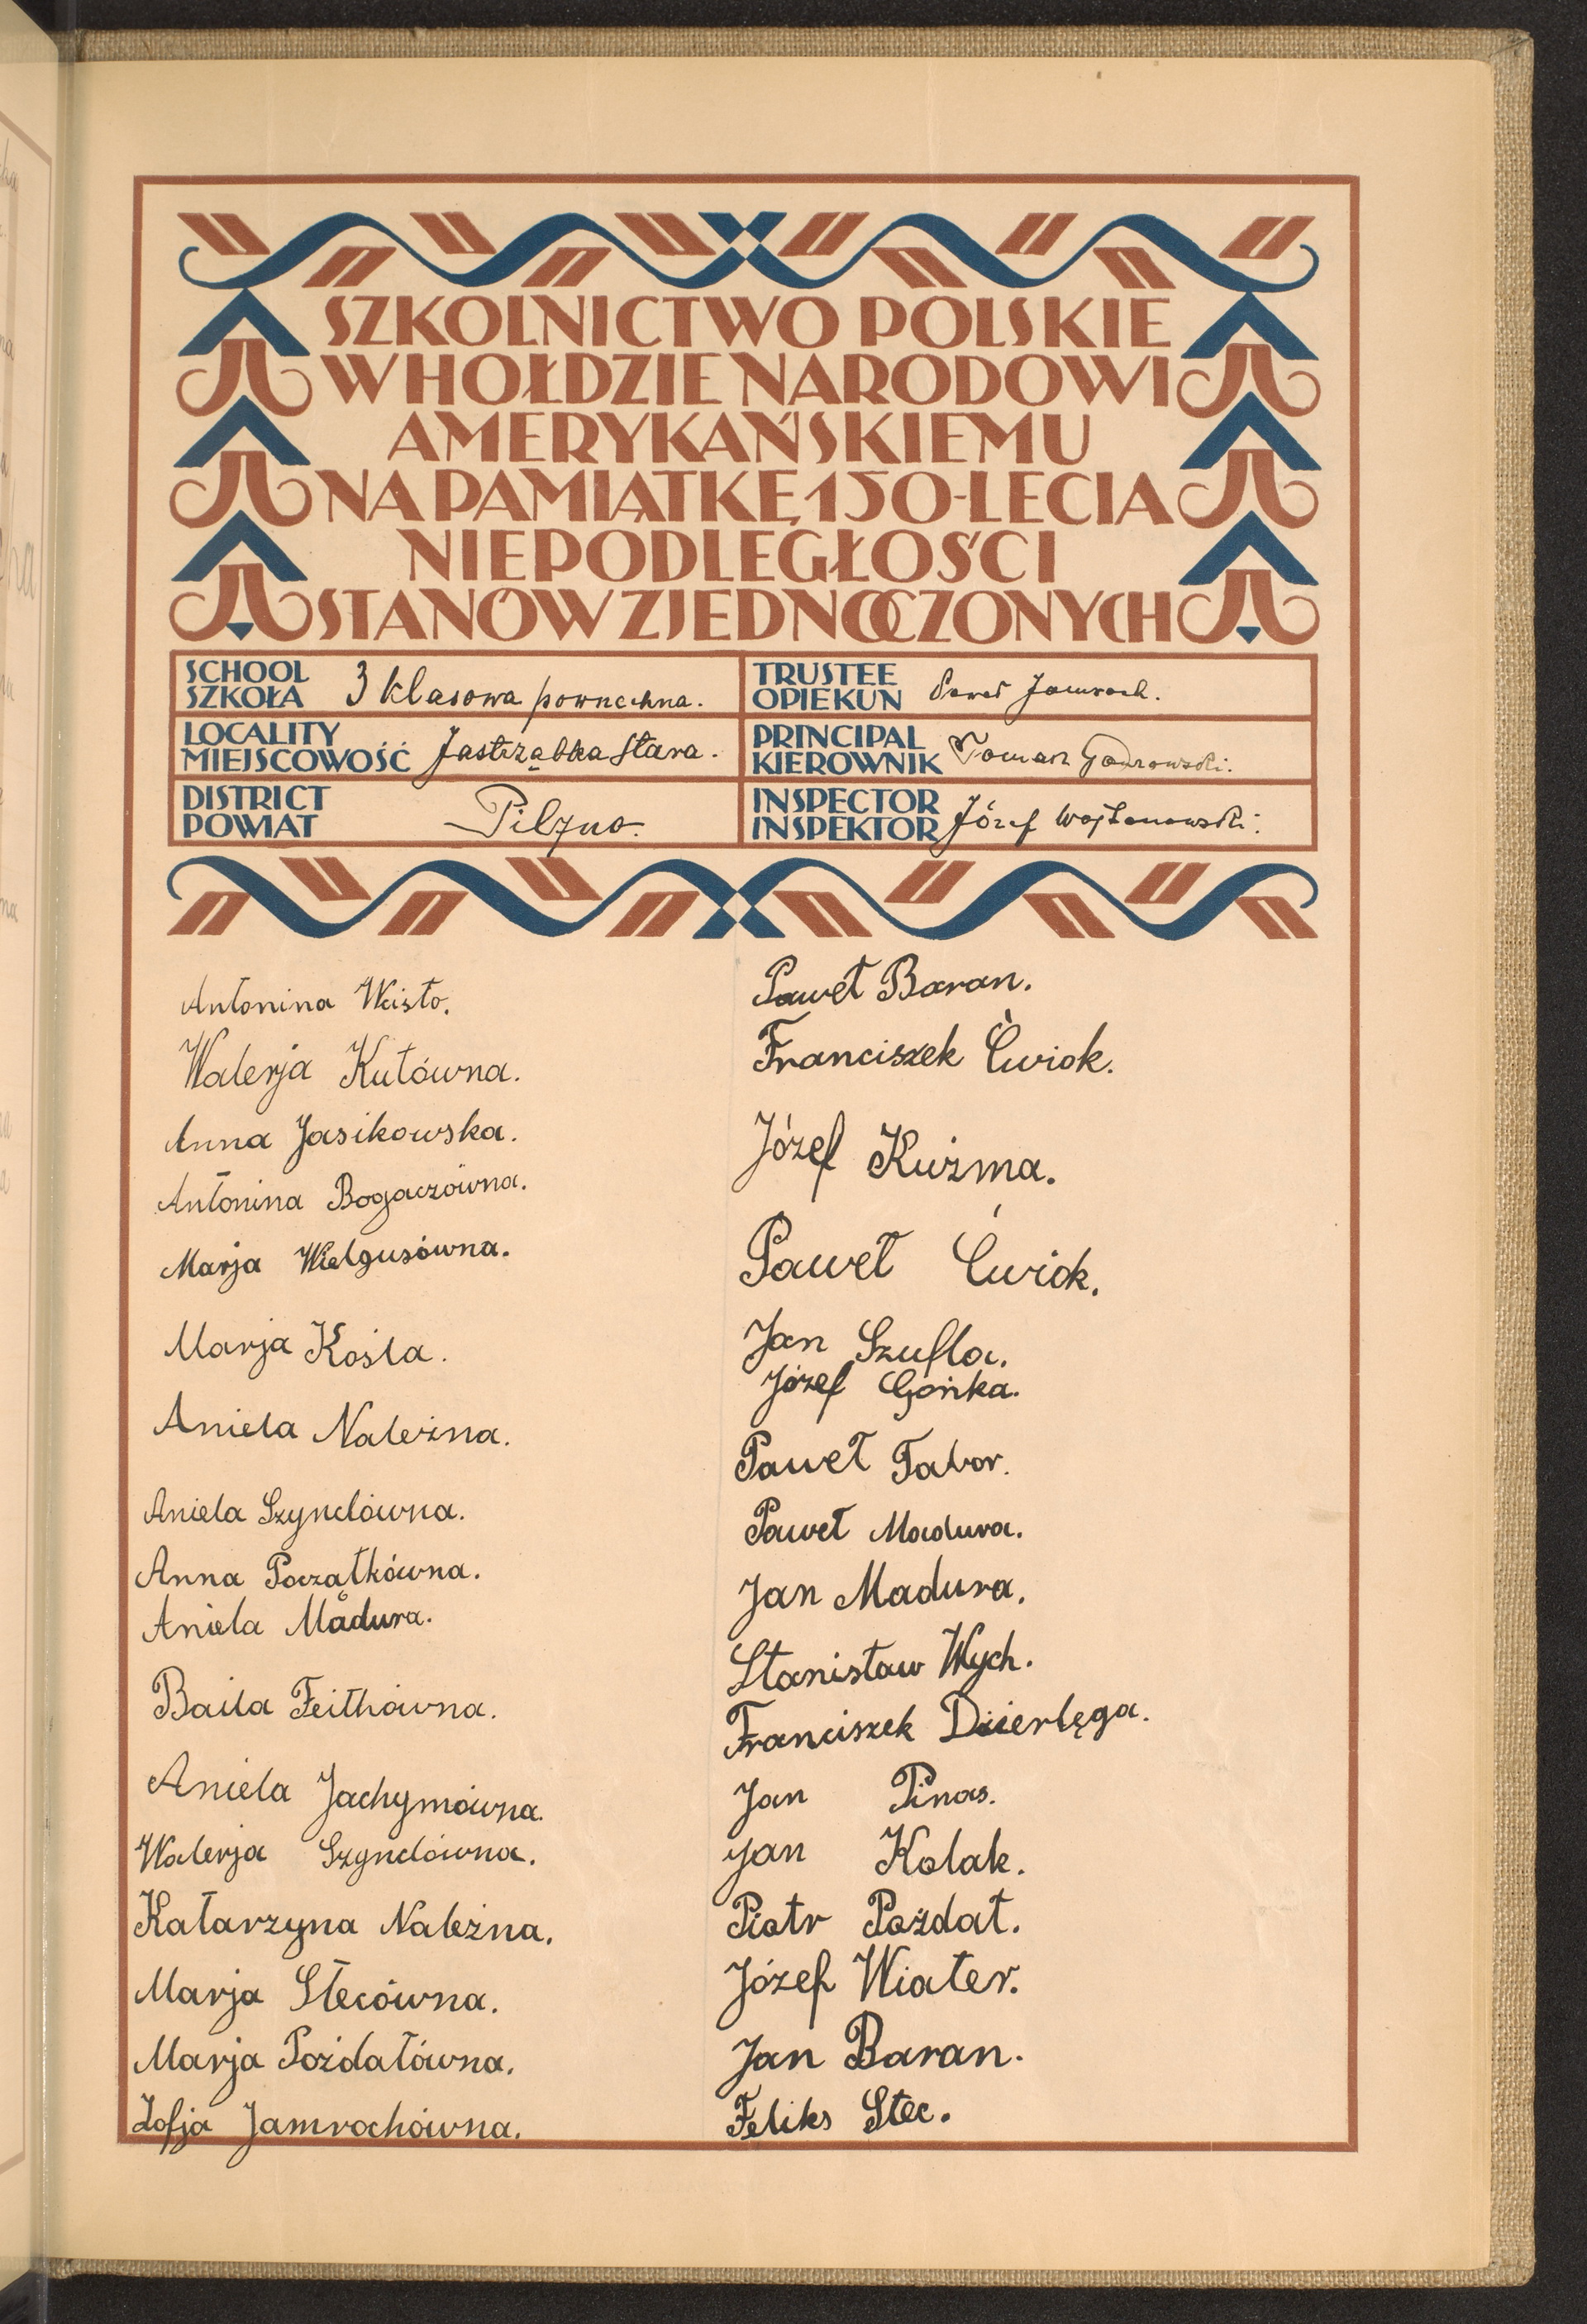 SZKOLNICTWO POLSKIE
W HOŁDZIE NARODOWI
AMERYKAŃSKIEMU
NA PAMIĄTKĘ 150-LECIA
NIEPODLEGŁOŚCI
STANÓW ZJEDNOCZONYCH
SCHOOL
SZKOŁA 3 klasowa powszechna.
TRUSTEE
OPIEKUN Paweł Jamroch.
LOCALITY
MIEJSCOWOŚĆ Jastrząbka Stara.
PRINCIPAL
KIEROWNIK Tomasz
DISTRICT
POWIAT Pilzno.
INSPECTOR
INSPEKTOR Józef
Antonina Wisło.
Walerja Kutówna.
Anna Jasikowska.
Antonina Bogaczówna.
Marja Wielgusówna.
Marja Kośla.
Aniela Należna.
Aniela Szyndówna.
Anna Początkówna.
Aniela Madura.
Baila Feithówna.
Aniela Jachymówna.
Walerja Szyndówna.
Katarzyna Należna.
Marja Stecówna.
Marja Pożdałówna.
Zofja Jamrochówna.
Paweł Baran.
Franciszek Ćwiok.
Józef Kuźma.
Paweł Ćwiok.
Jan Szufla.
Józef Gońka.
Paweł Tabor.
Paweł Madura.
Jan Madura.
Stanisław Wych.
Franciszek Dzierlęga.
Jan Pinas.
Jan Kolak.
Piotr Pożdał.
Józef Wiater.
Jan Baran.
Feliks Stec.